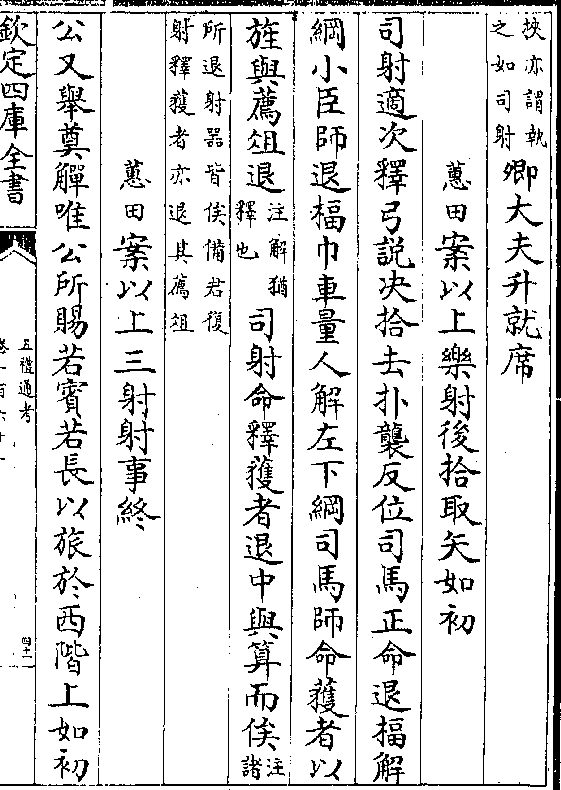 挾亦謂執
之如司射
卿大夫升就席
蕙田案以上樂射後拾取矢如初
司射適次釋弓説决拾去扑襲反位司馬正命退楅解
綱小臣師退楅巾車量人解左下綱司馬師命獲者以
旌與薦俎退
注解猶
釋也
司射命釋獲者退中與算而俟
注諸
所退射器皆俟備君復
射釋獲者亦退其薦俎
蕙田案以上三射射事終
公又舉奠觶唯公所賜若賓若長以旅於西階上如初
欽定四庫全書
五禮通考
卷一百六十一
四十二